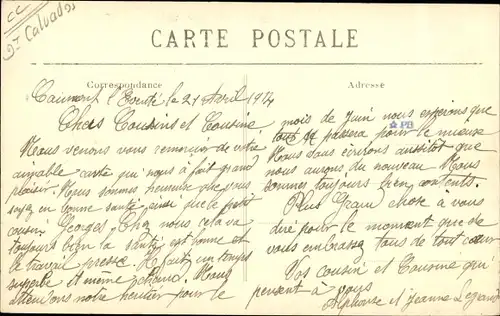 CC
Dt Calvados
CARTE POSTALE
Correspondance
Adresse
Caumont l'Eventé le 21 Avril 1914
Chers Cousins et Cousine
Nous venons vous remercier de votre
aimable carte qui nous à fait grand
plaisir. Nous sommes heureux que vous
soyez en bonne santé ainsi que le petit
cousin Georges. Chez nous cela va
toujours bien la santé est bonne et
le travail presse. Il fait un temps
superbe et même chaud. Nous
attendons notre héritier pour le
mois de Juin nous espérons que
tout se passera pour le mieux
Nous vous écrirons aussitôt que
nous aurons du nouveau Nous
sommes toujours bien contents.
Plus Grand chose a vous
dire pour le moment que de
vous embrassez tous de tout cœur
Vos cousin et Cousine qui
pensent à vous
Alphonse et Jeanne Legrand
PB